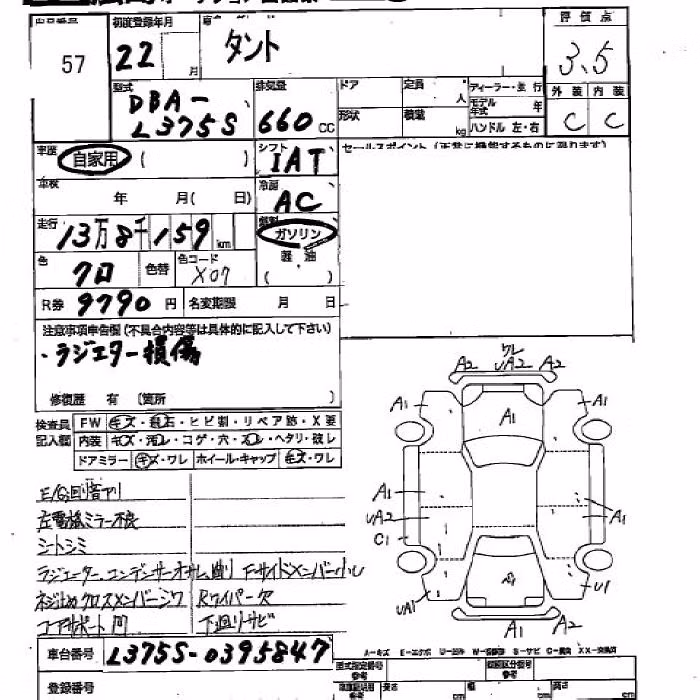 57
初度登録年月
22 月
タント
評価点
3.5
外装 内装
C C
型式
DBA-
L375S
排気量
660 CC
ドア 定員 人
形状 積載 kg
ディーラー・並行
モデル年式 年
ハンドル 左・右
車歴
自家用 ( )
シフト
IAT
セールスポイント (正常に機能するものに限ります)
車検
年 月( 日)
冷房
AC
走行
13万8千159 km
燃料
ガソリン
軽油
( )
色
クロ
色替
色コード
X07
R券 9790 円
名変期限 月 日
注意事項申告欄(不具合内容等は具体的に記入して下さい)
・ラジエター損傷
修復歴 有 〔箇所 〕
検査員記入欄
FW キズ・飛石・ヒビ割・リペア跡・X要
内装 キズ・汚レ・コゲ・穴・スレ・ヘタリ・破レ
ドアミラー キズ・ワレ ホイール・キャップ キズ・ワレ
E/G回リ音アリ
左電格ミラー不良
シートシミ
ラジエーター、コンデンサーオサレ、曲リ Fサイドメンバー小レ
ネジ止めクロスメンバーシワ Rワイパー欠
コアサポート凹 下廻リサビ
ワレ
A2 UA2 A2
A1 A1
A1
A1
UA2 A1
C1
A1
UA1 U1
A1 A2
車台番号 L375S-0395847
A-キズ E-エクボ U-凹み W-補修跡 S-サビ C-腐食 XX-交換済
型式指定番号 参考
類別区分番号 参考
登録番号
長さ cm
幅 cm
高さ cm